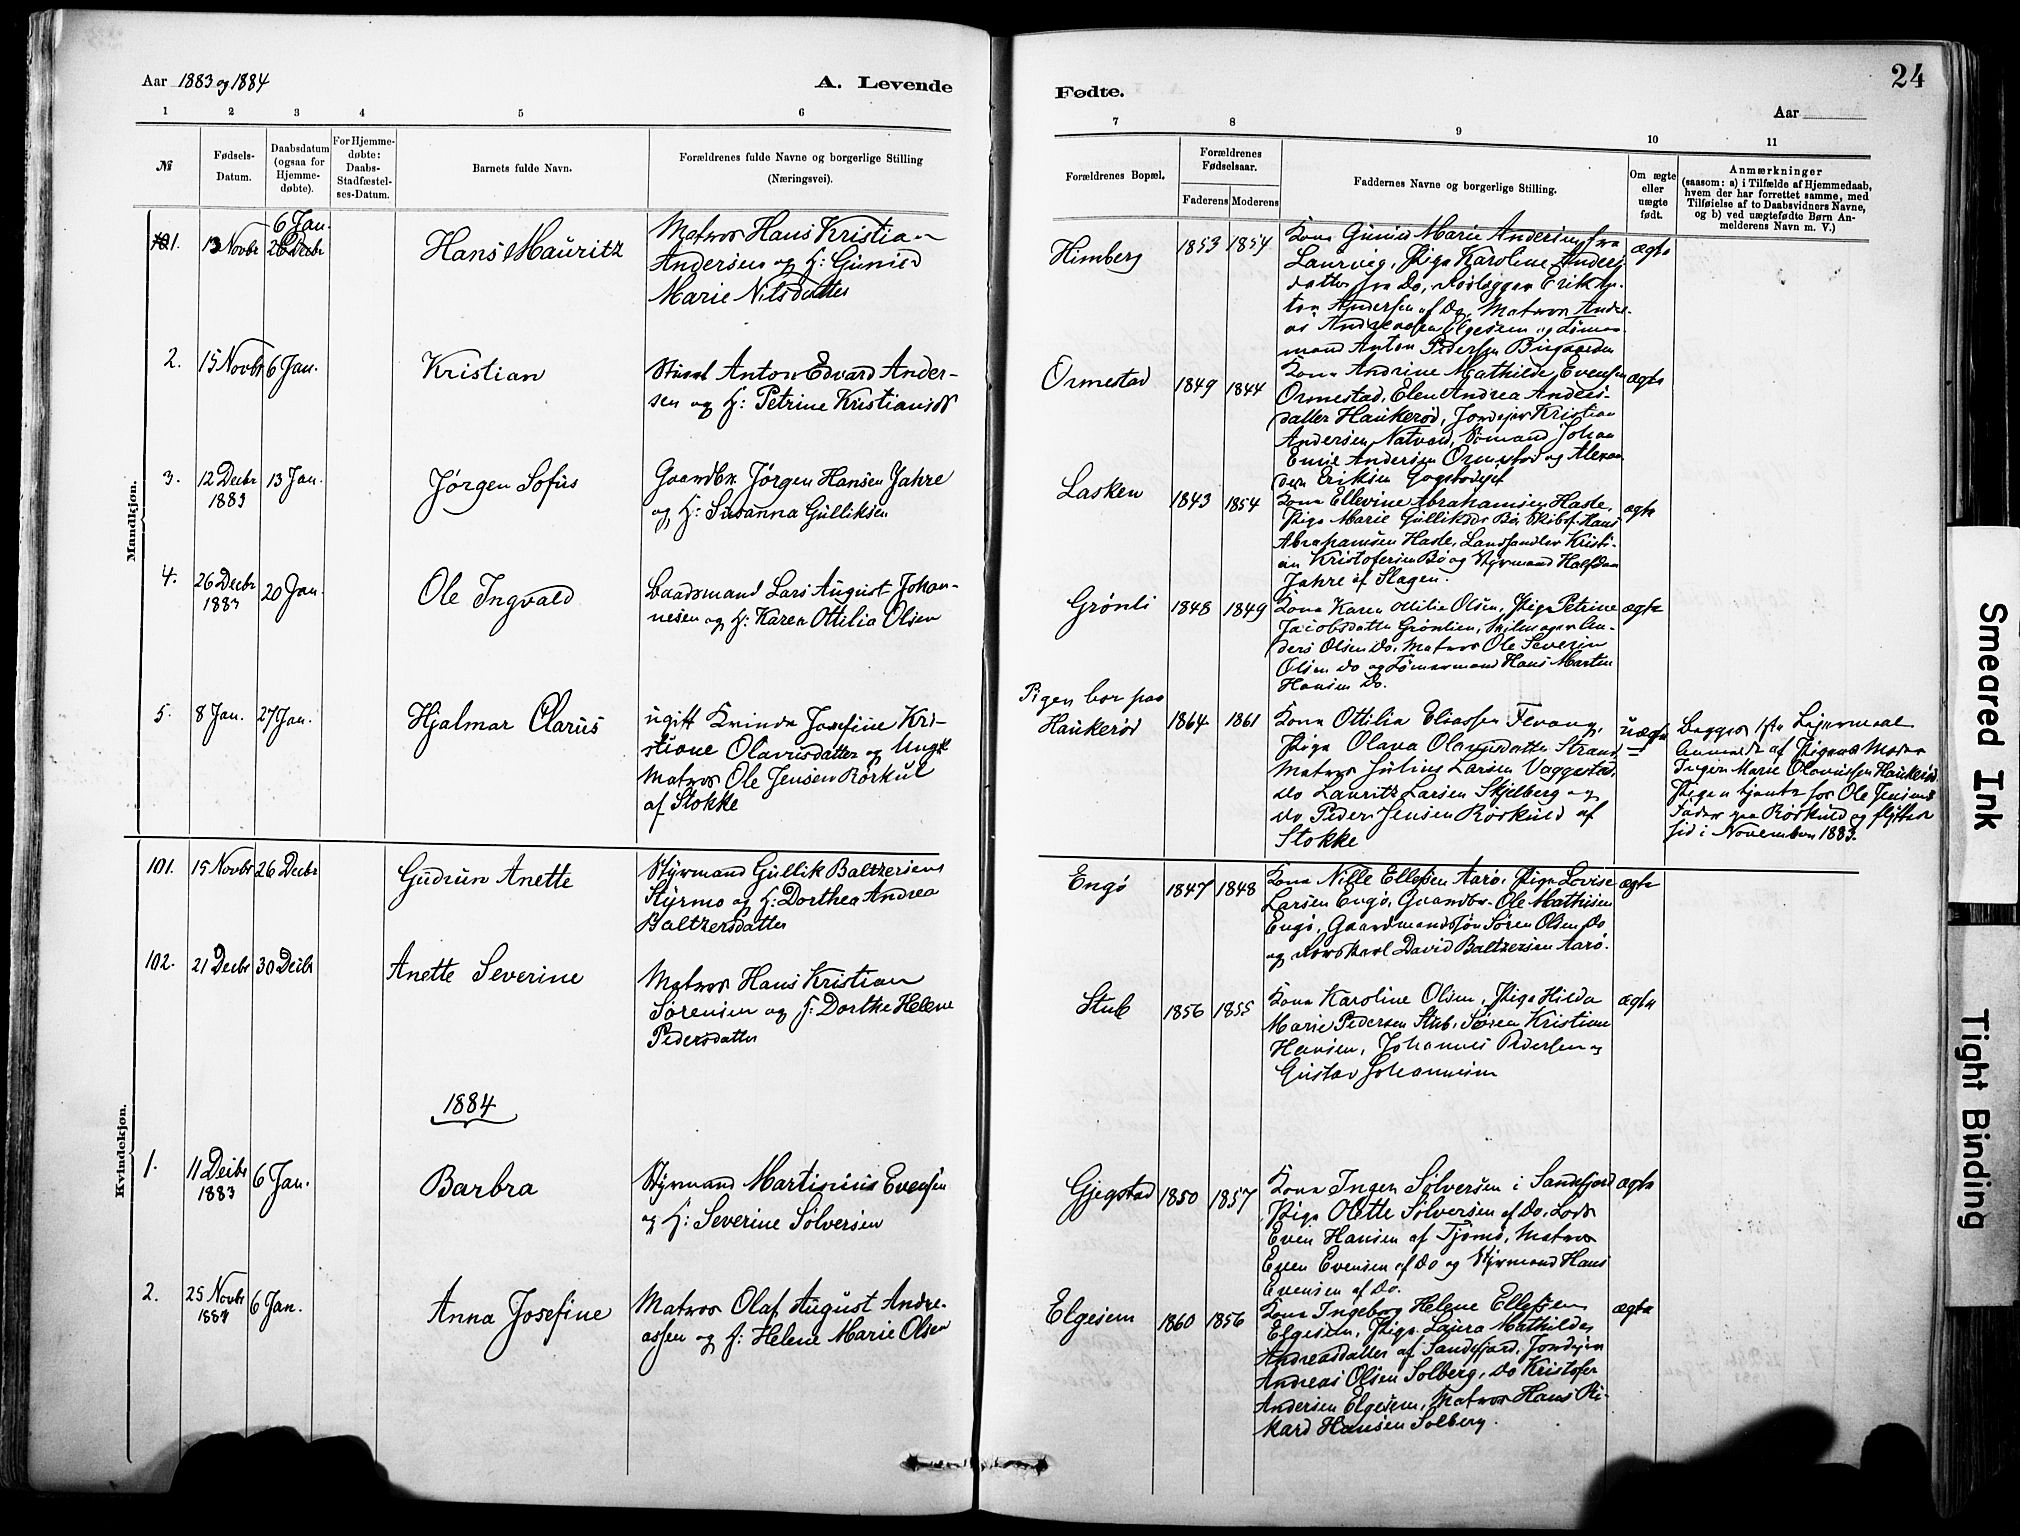 24
Aar 1883 og 1884
A. Levende
Fødte.
Aar
1 2 3 4 5 6
7 8 9 10 11
№
Fødsels-Datum.
Daabsdatum (ogsaa for Hjemme-døbte).
For Hjemme-døbte: Daabs-Stadfæstel-ses-Datum.
Barnets fulde Navn.
Forældrenes fulde Navne og borgerlige Stilling
(Næringsvei).
Forældrenes Bopæl.
Forældrenes Fødselsaar.
Faderens Moderens
Faddernes Navne og borgerlige Stilling.
Om ægte eller uægte født.
Anmærkninger
(saasom: a) i Tilfælde af Hjemmedaab,
hvem der har forrettet samme, med
Tilføielse af to Daabsvidners Navne,
og b) ved uægtefødte Børn An-
melderens Navn m. V.)
Mandkjøn.
1. 13 Novbr 6 Jan.
Hans Mauritz
Matros Hans Kristian
Andersen og H: Gunild
Marie Nilsdatter
Himberg
1853 1854
Kona Gunild Marie Andersen fra
Laurvig, Pige Karoline Anders-
datter fra Do, Erik An-
ton Andersen af Do, Matros
Anton Pedersen
ægte
2. 15 Novbr 6 Jan.
Kristian
Anton Edvard Ander-
sen og H: Petrine Kristiansd
Ormestad
1849 1844
Kona Andrine Mathilde Evensen
Ormestad, Elen Andrea Anders-
datter Haukerød, Jordejer Kristian
Andersen Natvald, Sømand Johan
Emil Andersen Ormestad og Alexan-
der Eriksen
ægte
3. 12 Decbr 1883 13 Jan.
Jørgen Sofus
Gaardbr. Jørgen Hansen Jahre
og H: Susanna Gulliksen
Lasken
1843 1854
Kona Ellevine Abrahamsen Hasle,
Pige Marie Gulliksdr Bø, Skibsf. Hans
Abrahamsen Hasle, Landhandler Kristi-
an Kristofersen Bø og Styrmand Halfdan
Jahre af Slagen.
ægte
4. 26 Decbr 1883 20 Jan.
Ole Ingvald
Baadsmand Lars August Johan-
nesen og H: Karen Ottilia Olsen
Grønli
1848 1849
Kona Karen Ottilie Olsen, Pige Petrine
Jacobsdatter Grønlien, Seilmager An-
ders Olsen Do, Matros Ole Severin
Olsen Do og Tømmermand Hans Martin
Hansen Do.
ægte
5. 8 Jan. 27 Jan.
Hjalmar Olarus
ugift Kvinde Josefine Kri-
stiane Olavusdatter og Ungk.
Matros Ole Jensen Rørkul
af Stokke
Pigen bor paa
Haukerød
1864 1861
Kona Ottilia Eliassen Fevang,
Pige Olava Olavusdatter Strand
Matros Julius Larsen Vaggestad,
Do Lauritz Larsen Skjelberg og
Do Peder Jensen Rørkuld af
Stokke
uægte
Begges 1ste Leiermaal
Anmeldt af Pigens Moder
Inger Marie Olavussen Haukerød
Pigen tjente hos Ole Jensens
Fader paa Rørkuld og flyttede
hid i November 1883.
Kvindekjøn.
101. 15 Novbr 26 Decbr
Gudrun Anette
Styrmand Gullik Baltzersen
Styrmo og H: Dorthea Andrea
Baltzersdatter
Engø
1847 1848
Kona Nille Ellefsen Aarø, Pige Lovise
Larsen Engø, Gaardbr. Ole Mathisen
Engø, Gaardmandssøn Søren Olsen Do
og Ungkarl David Baltzersen Aarø.
ægte
102. 21 Decbr 30 Decbr
Anette Severine
Matros Hans Kristian
Sørensen og H: Dorthe Helene
Pedersdatter
Stub
1856 1855
Kona Karoline Olsen, Pige Hilda
Marie Pedersen Stub, Søren Kristian
Hansen, Johannes Pedersen og
Gustav Johannesen
ægte
1884
1. 11 Decbr 1883 6 Jan.
Barbra
Styrmand Martinius Evensen
og H: Severine Sølversen
Gjegstad
1850 1857
Kona Inger Sølversen i Sandefjord
Pige Olette Sølversen af Do, Lods
Even Hansen af Tjømø, Matros
Even Evensen af Do og Styrmand Hans
Evensen af Do.
ægte
2. 25 Novbr 6 Jan.
Anna Josefine
Matros Olaf August Andre-
assen og H: Helene Marie Olsen
Elgesem
1860 1856
Kona Ingeborg Helene Ellefsen
Elgesem, Pige Laura Mathilde
Andreasdatter af Sandefjord, Jordejer
Andreas Olsen Solberg, Do Kristofer
Andersen Elgesem, Matros Hans Ri-
kard Hansen Solberg.
ægte
Smeared Ink
Tight Binding